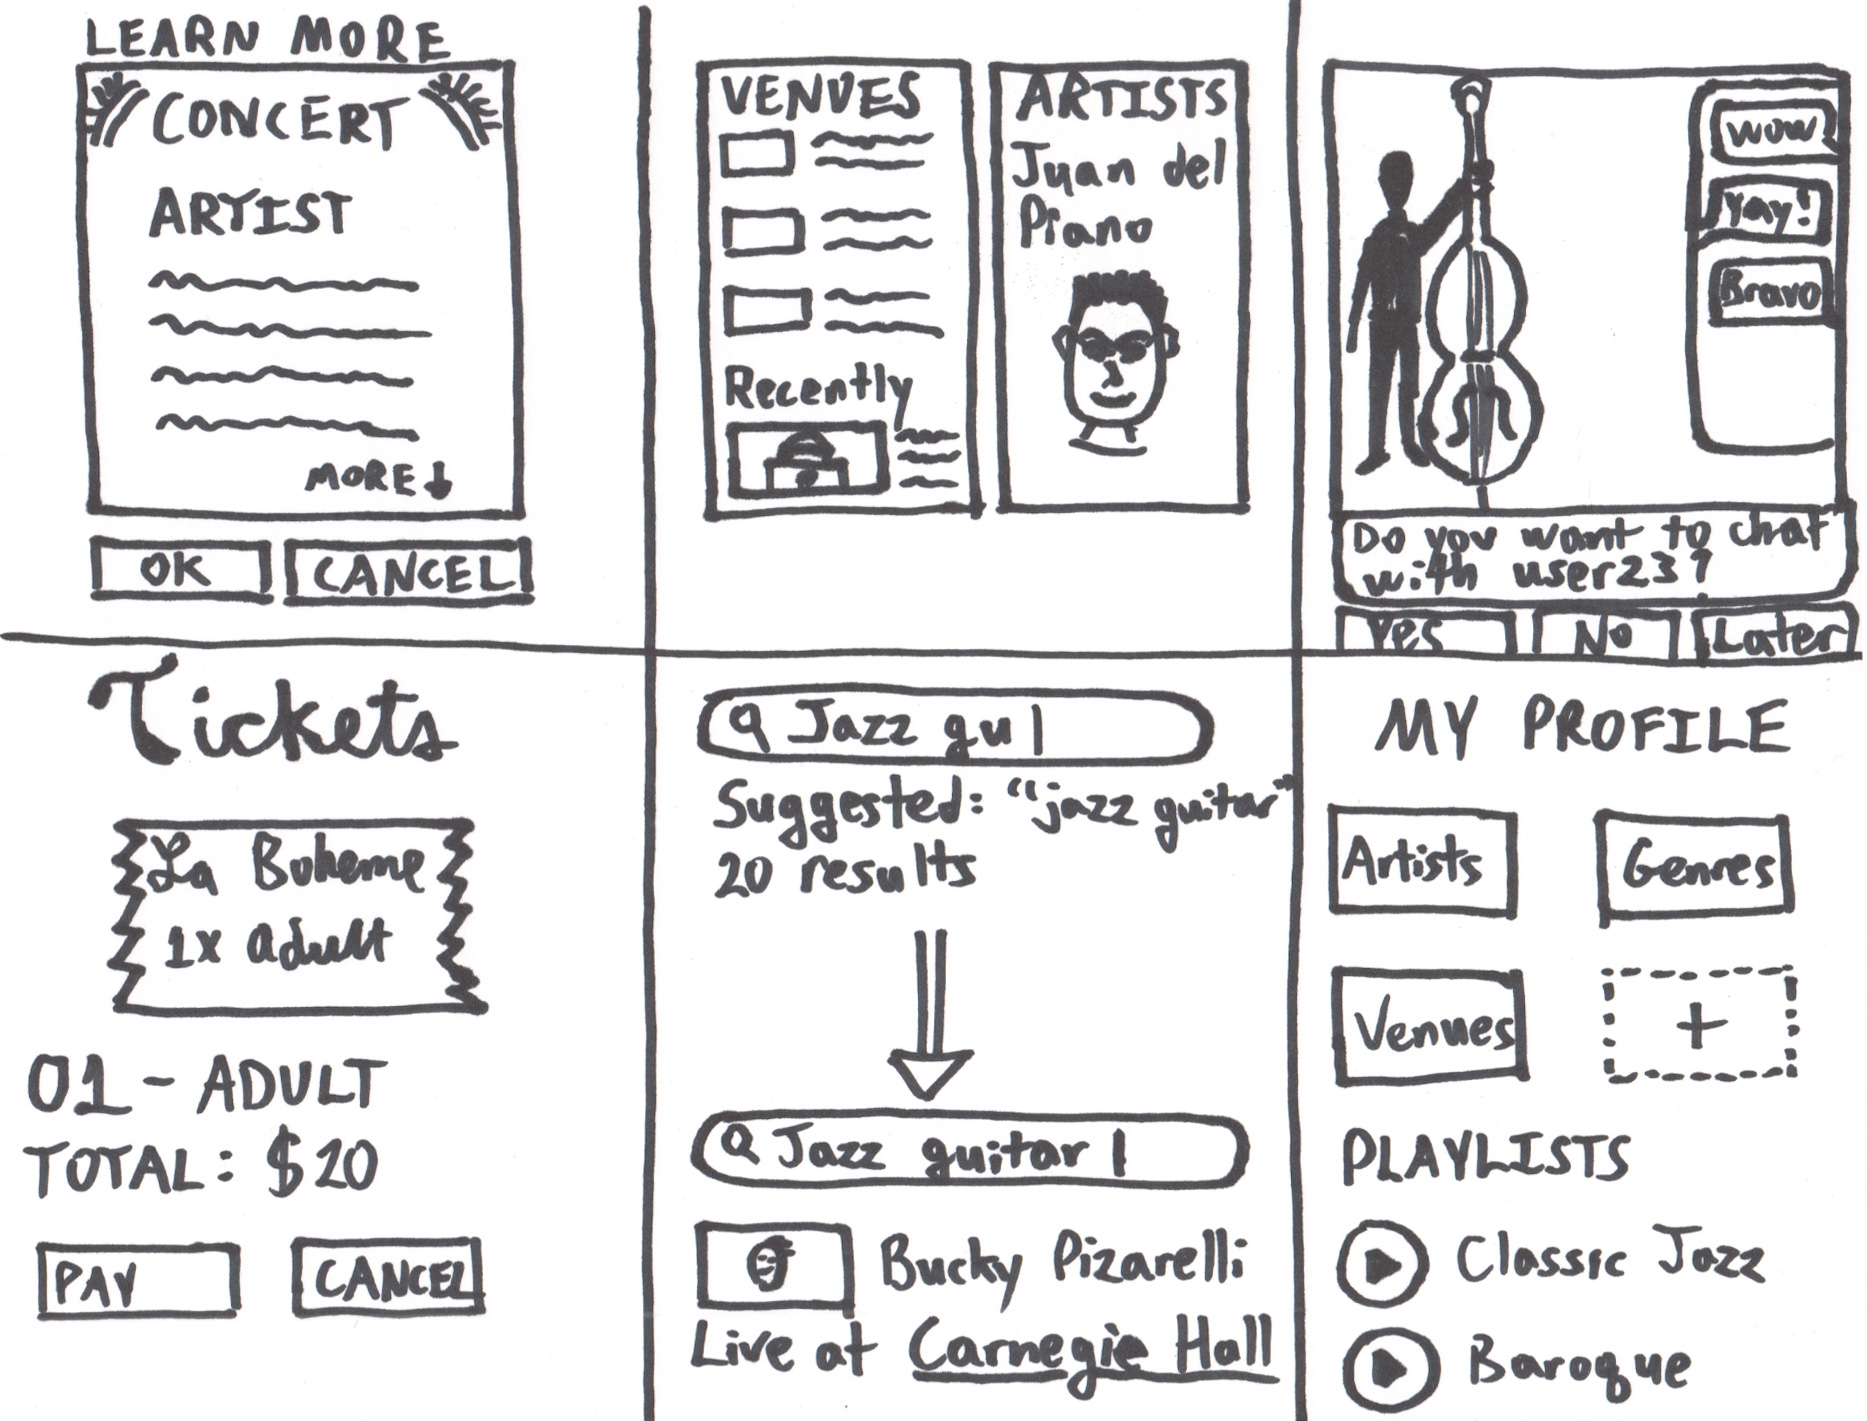 LEARN MORE
CONCERT
ARTIST
MORE
OK
CANCEL
VENUES
Recently
ARTISTS
Juan del
Piano
wow
Yay!
Bravo
Do you want to chat
with user23?
Yes
No
Later
Tickets
La Boheme
1x adult
01 - ADULT
TOTAL: $20
PAY
CANCEL
Jazz gu|
Suggested: "jazz guitar"
20 results
Jazz guitar|
Bucky Pizarelli
Live at Carnegie Hall
MY PROFILE
Artists
Genres
Venues
+
PLAYLISTS
Classic Jazz
Baroque